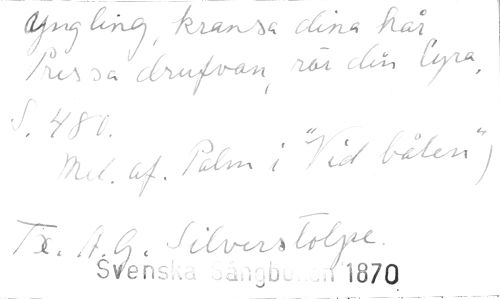 Yngling, kransa dina hår
Prissa drufvan, rör din Lyra.
S. 480.
Mel. af. Palm i "Vid bålen")
Tx. A. G. Silverstolpe.
Svenska Sångboken 1870